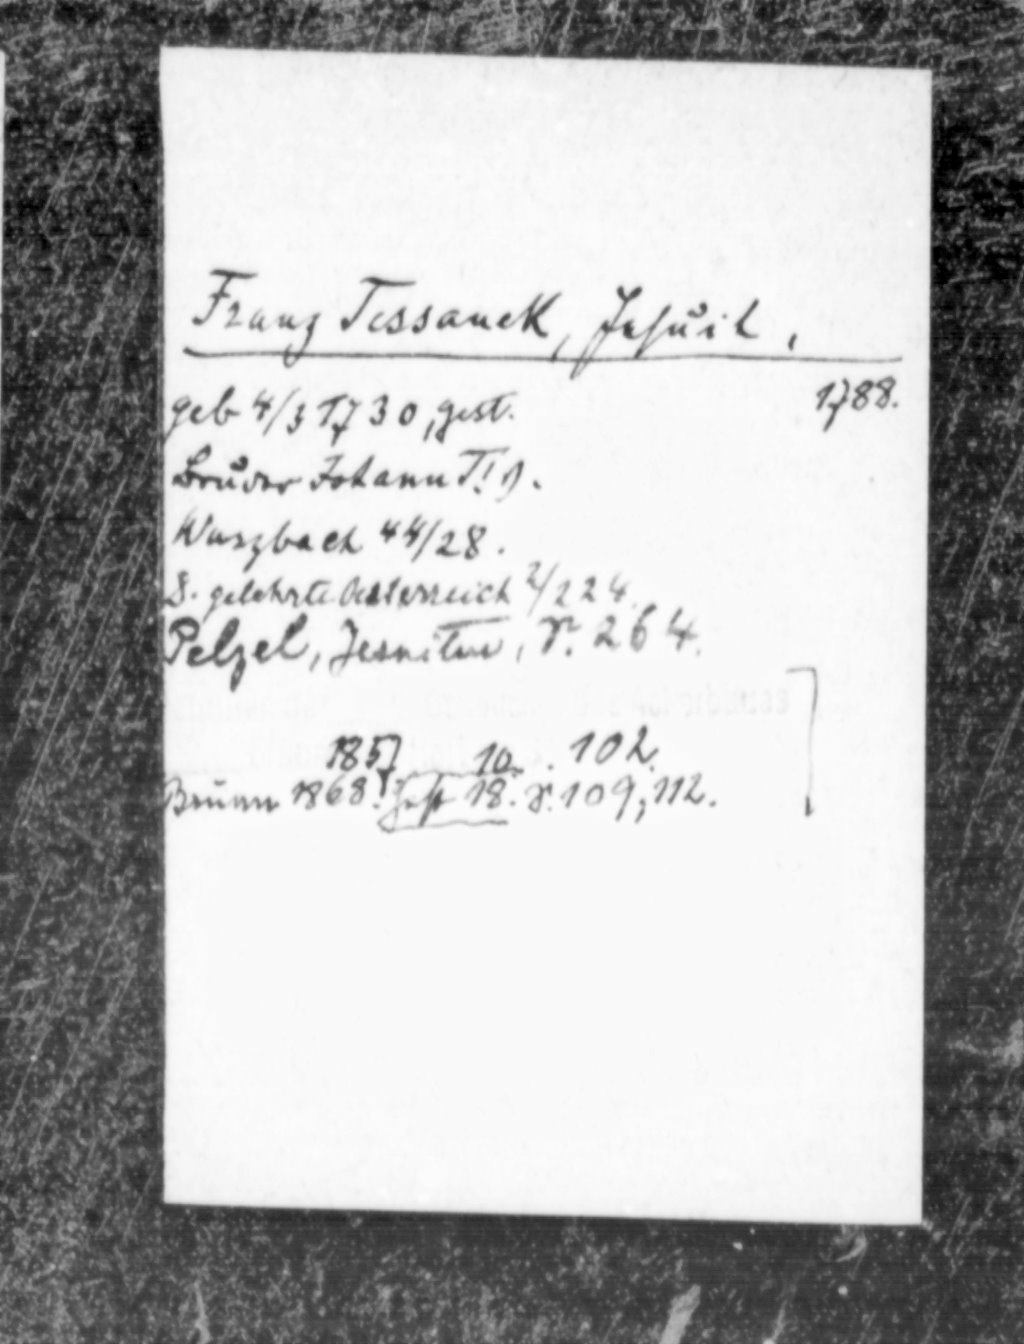 Franz Tessanek, Jesuit,
geb 4/3 1730, gest. 1788.
Bruder Johann T! ).
Wurzbach 44/28.
D. gelehrte Oesterreich 2/224.
Pelzel, Jesuiten, S. 264.
1857 10. 102.
Brünn 1868. Heft 18. S. 109, 112.